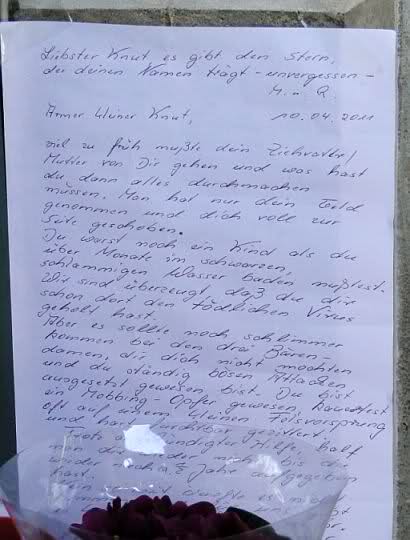 Liebster Knut es gibt den Stern,
der deinen Namen trägt - unvergessen -
M. u. R.
Armer kleiner Knut, 10.04.2011
viel zu früh mußte dein Ziehvater/
Mutter von Dir gehen und was hast
du dann alles durchmachen
müssen. Man hat nur dein Geld
genommen und dich voll zur
Seite geschoben.
Du warst noch ein Kind als du
über Monate im schwarzen,
schlammigen Wasser baden mußtest.
Wir sind überzeugt, daß du dir
schon dort den tödlichen Virus
geholt hast.
Aber es sollte noch schlimmer
kommen bei den drei Bären-
damen, die dich nicht mochten
und du ständig bösen Attacken
ausgesetzt gewesen bist. Du bist
ein Mobbing-Opfer gewesen
oft auf einem kleinen Felsvorsprung
und hast furchtbar gezittert.
Trotz Hilfe, half
man dir nicht, bis du
Jahr aufgegeben
hast.